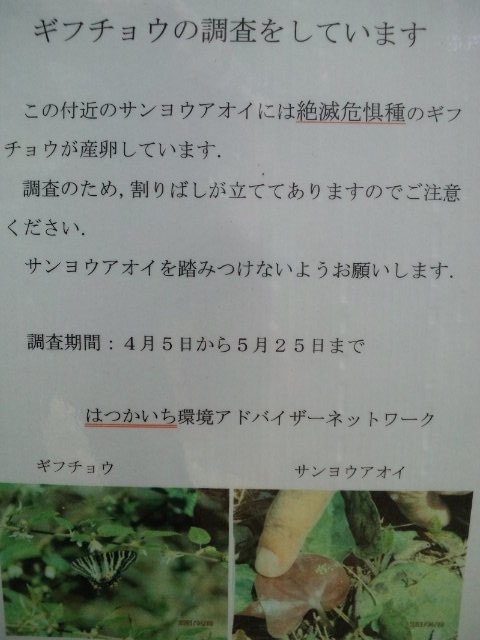 ギフチョウの調査をしています
この付近のサンヨウアオイには絶滅危惧種のギフ
チョウが産卵しています.
調査のため,割りばしが立ててありますのでご注意
ください.
サンヨウアオイを踏みつけないようお願いします.
調査期間：４月５日から５月２５日まで
はつかいち環境アドバイザーネットワーク
ギフチョウ
サンヨウアオイ